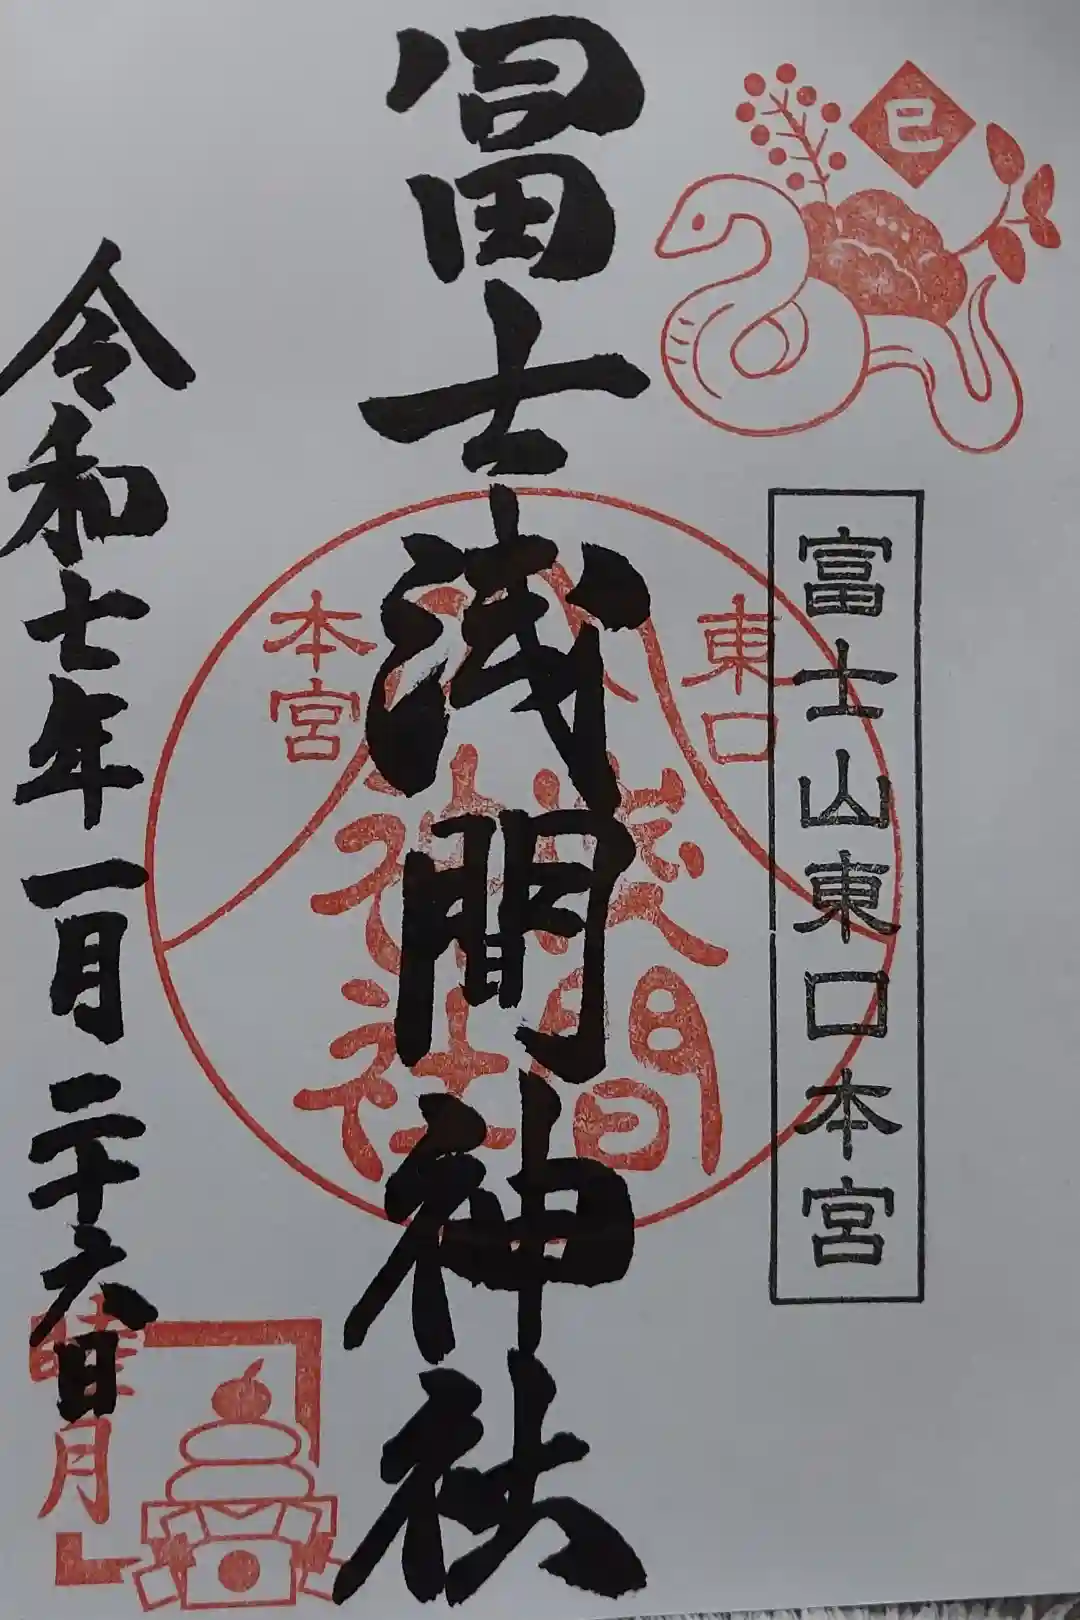 巳
富士山東口本宮
冨士浅間神社
東口
本宮
淺間
神社
令和七年一月二十六日
睦月